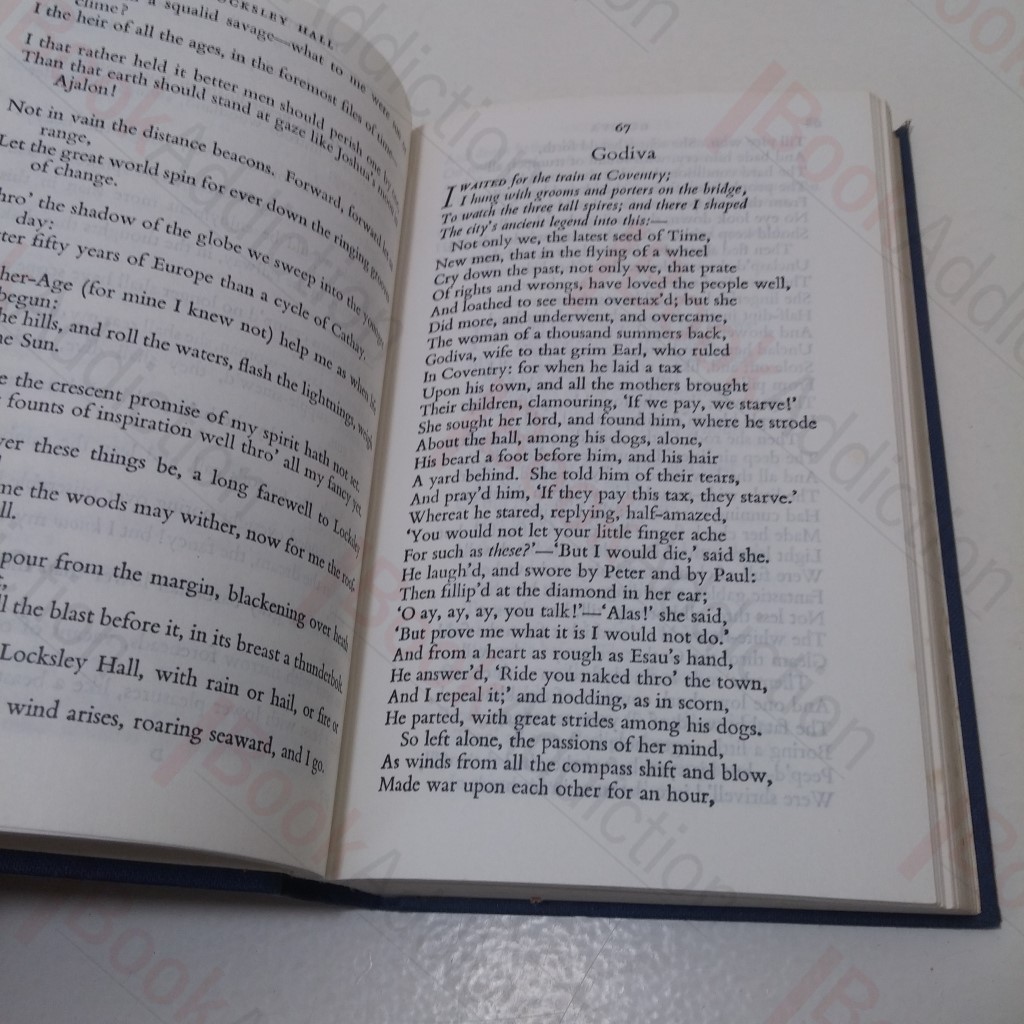 LOCKSLEY HALL
a squalid savage—what to me were
clime?
I the heir of all the ages, in the foremost files of time—
I that rather held it better men should perish one by one,
Than that earth should stand at gaze like Joshua's moon in
Ajalon!
Not in vain the distance beacons. Forward, forward let us
range,
Let the great world spin for ever down the ringing grooves
of change.
thro' the shadow of the globe we sweep into the younger
day:
fifty years of Europe than a cycle of Cathay.
(for mine I knew not) help me as when life
begun:
the hills, and roll the waters, flash the lightnings, weigh
the Sun.
the crescent promise of my spirit hath not set.
founts of inspiration well thro' all my fancy yet.
these things be, a long farewell to Locksley
me the woods may wither, now for me the roof-
pour from the margin, blackening over heath
the blast before it, in its breast a thunderbolt.
Locksley Hall, with rain or hail, or fire or
wind arises, roaring seaward, and I go.
67
Godiva
I WAITED for the train at Coventry;
I hung with grooms and porters on the bridge,
To watch the three tall spires; and there I shaped
The city's ancient legend into this:—
Not only we, the latest seed of Time,
New men, that in the flying of a wheel
Cry down the past, not only we, that prate
Of rights and wrongs, have loved the people well,
And loathed to see them overtax'd; but she
Did more, and underwent, and overcame,
The woman of a thousand summers back,
Godiva, wife to that grim Earl, who ruled
In Coventry: for when he laid a tax
Upon his town, and all the mothers brought
Their children, clamouring, 'If we pay, we starve!'
She sought her lord, and found him, where he strode
About the hall, among his dogs, alone,
His beard a foot before him, and his hair
A yard behind. She told him of their tears,
And pray'd him, 'If they pay this tax, they starve.'
Whereat he stared, replying, half-amazed,
'You would not let your little finger ache
For such as these?'—'But I would die,' said she.
He laugh'd, and swore by Peter and by Paul:
Then fillip'd at the diamond in her ear;
'O ay, ay, ay, you talk!'—'Alas!' she said,
'But prove me what it is I would not do.'
And from a heart as rough as Esau's hand,
He answer'd, 'Ride you naked thro' the town,
And I repeat it;' and nodding, as in scorn,
He parted, with great strides among his dogs.
So left alone, the passions of her mind,
As winds from all the compass shift and blow,
Made war upon each other for an hour,
Book Addiction